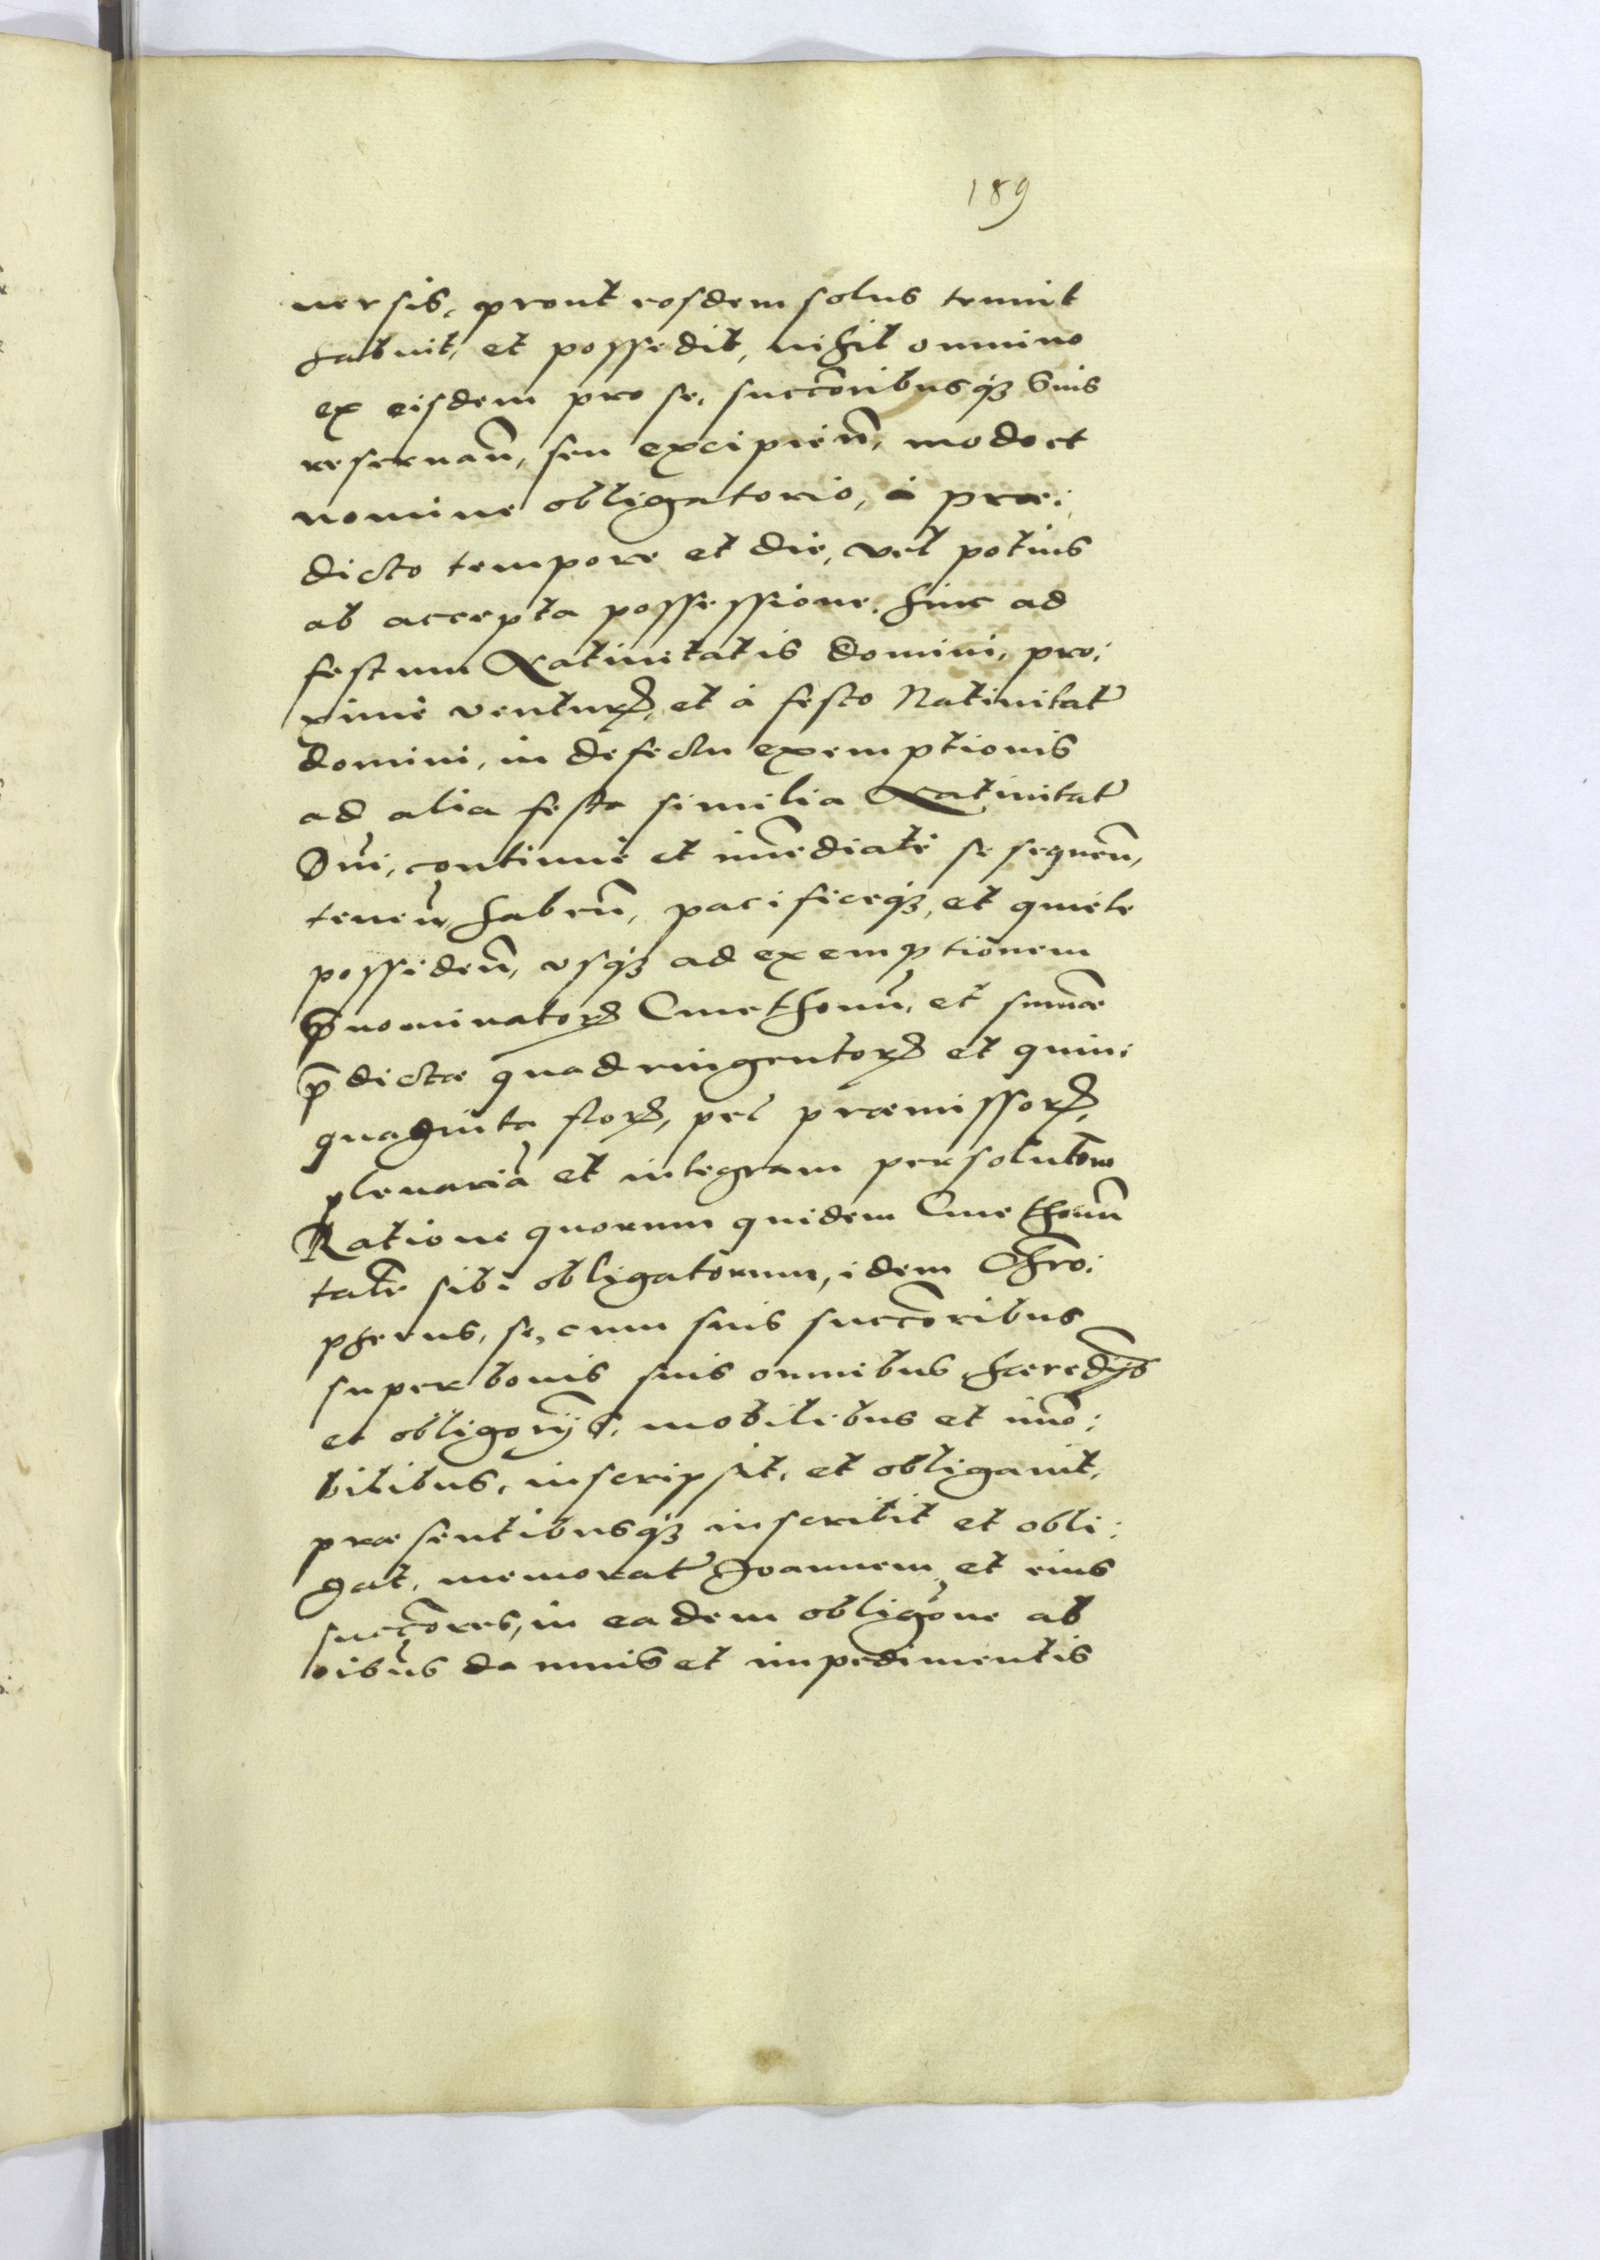 189
uersis, prout eosdem solus tenuit
habuit, et possedit, nihil omnino
ex eisdem pro se, succōribusq₃ suis
reseruan̄, seu excipien̄, modo et
nomine obligatorio, à præ:
dicto tempore et die, vel potius
ab accepta possessione, hinc ad
festum Natiuitatis Domini, pro:
ximè venturꝝ, et à festo Natiuitat̄
Domini, in defectu exemptionis
ad alia festa similia Natiuitat̄
Dn̄i, continuè et im̄ediatè se sequen̄,
tenen̄, haben̄, pacificeq₃, et quiete
possiden̄, vsq₃ ad exemptionem
p̄nominatoꝝ Cmethonū, et sum̄æ
p̄dictæ quadringentoꝝ et quin:
quaginta floꝝ, per præmissoꝝ,
plenariā et integram persolutōem
Ratione quorum quidem Cmethonū
talr̄ sibi obligatorum, idem Chrō:
pherus, se, cum suis succōribus
super bonis suis omnibus hæredijs
et obligorijs, mobilibus et im̄o:
bilibus, inscripsit, et obligauit,
præsentibusq₃ inscribit et obli:
gat, memorat̄ Joannem et eius
succōres, in eadem obligōne ab
oībus damnis et impedimentis